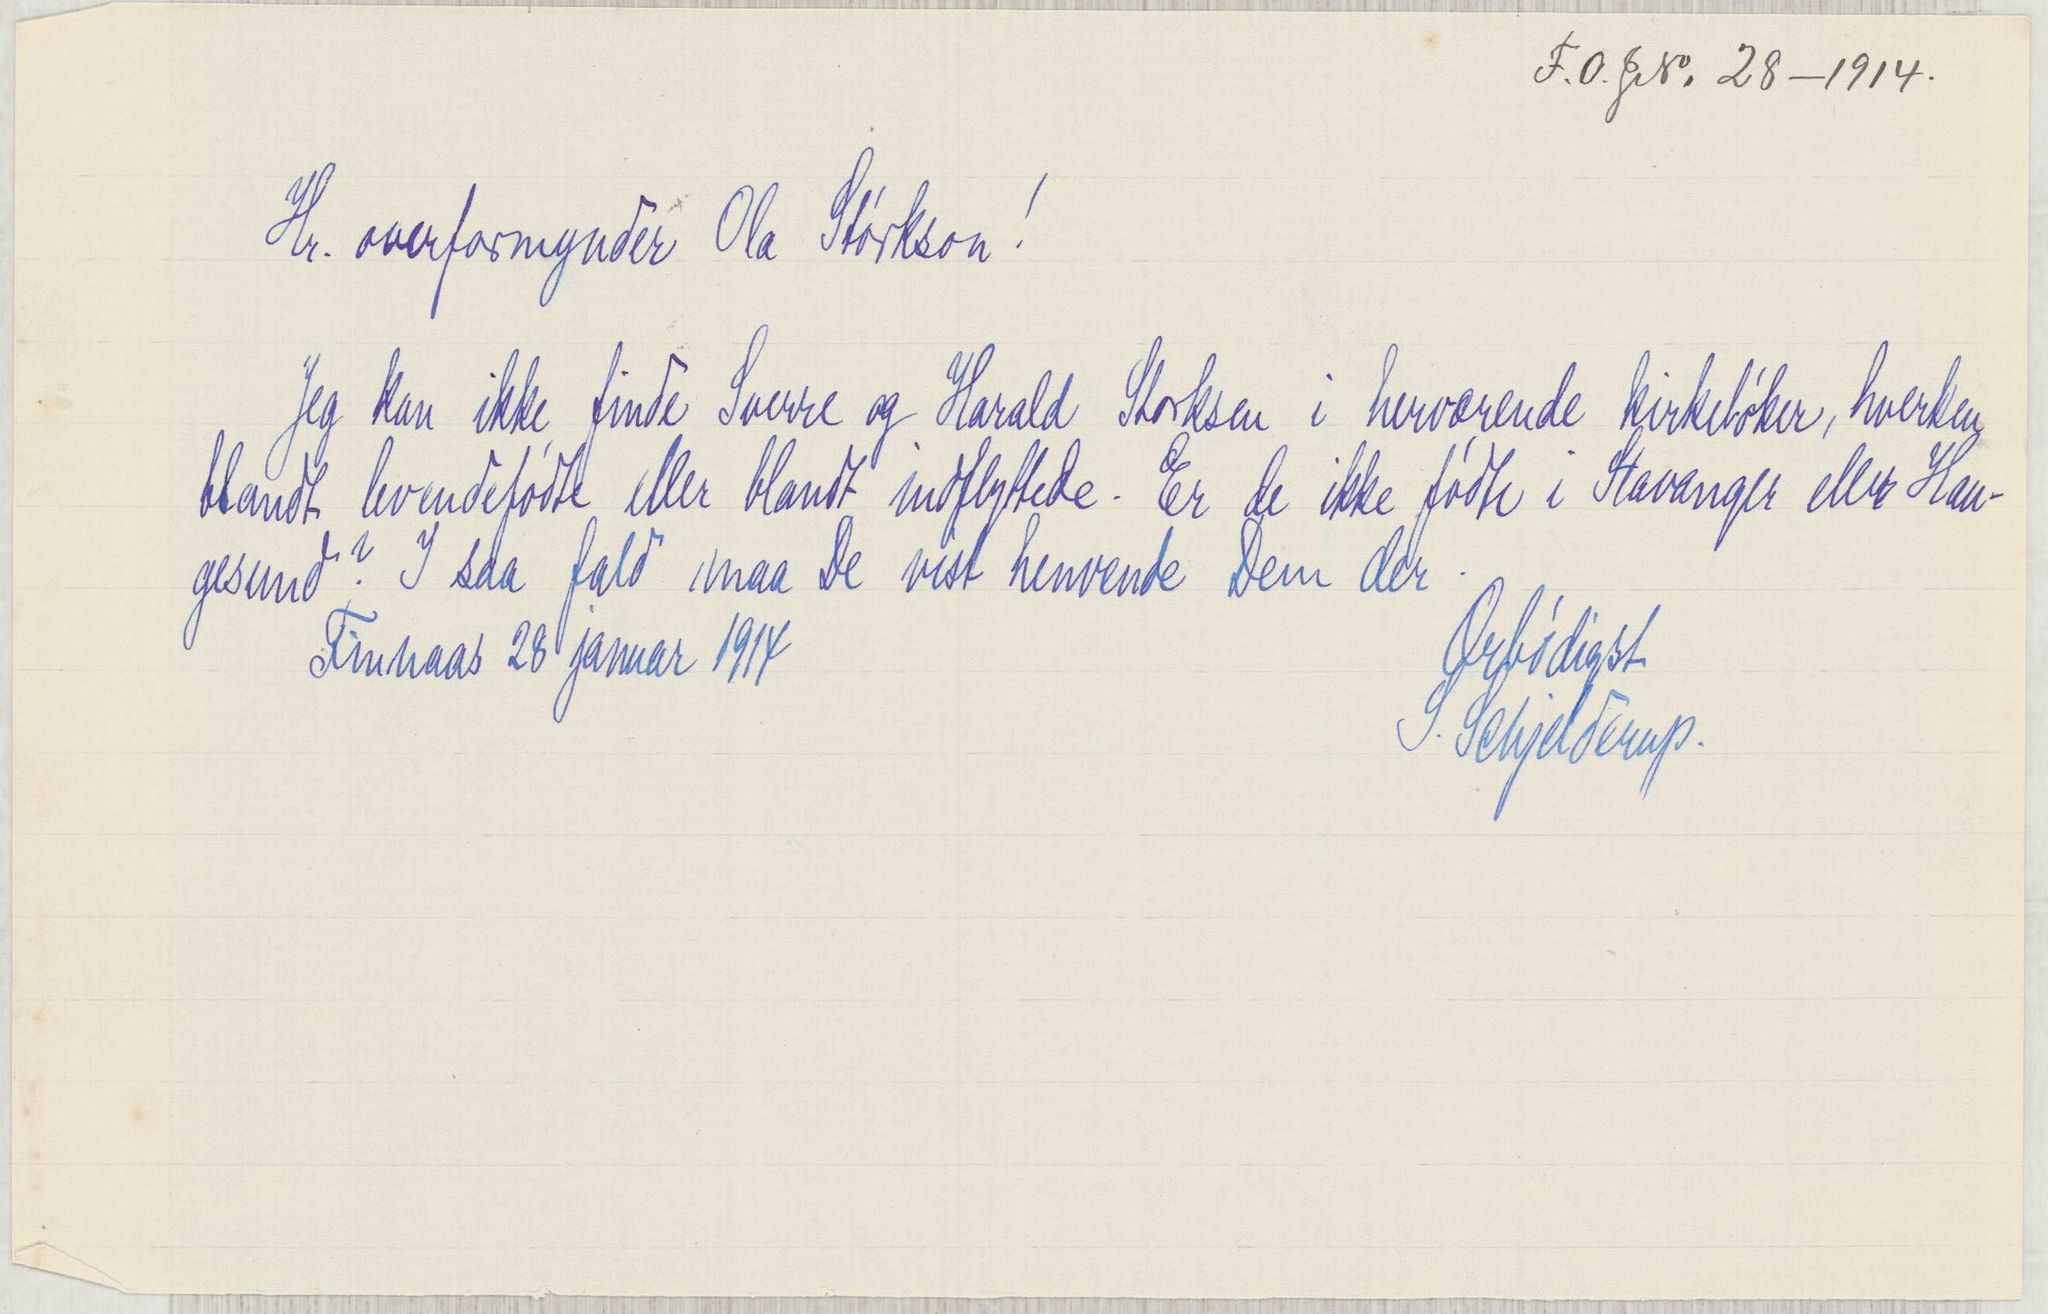 F.O. J.No. 28-1914.
Hr. overformynder Ola Størkson!
Jeg kan ikke finde Sverre og Harald Storksen i herværende kirkebøker, hverken
blandt levendefødte eller blandt indflyttede. Er de ikke fødte i Stavanger eller Hau-
gesund? I saa fald maa De vist henvende Dem der.
Finnaas 28 januar 1914
Ørbødigst
S. Schjelderup.